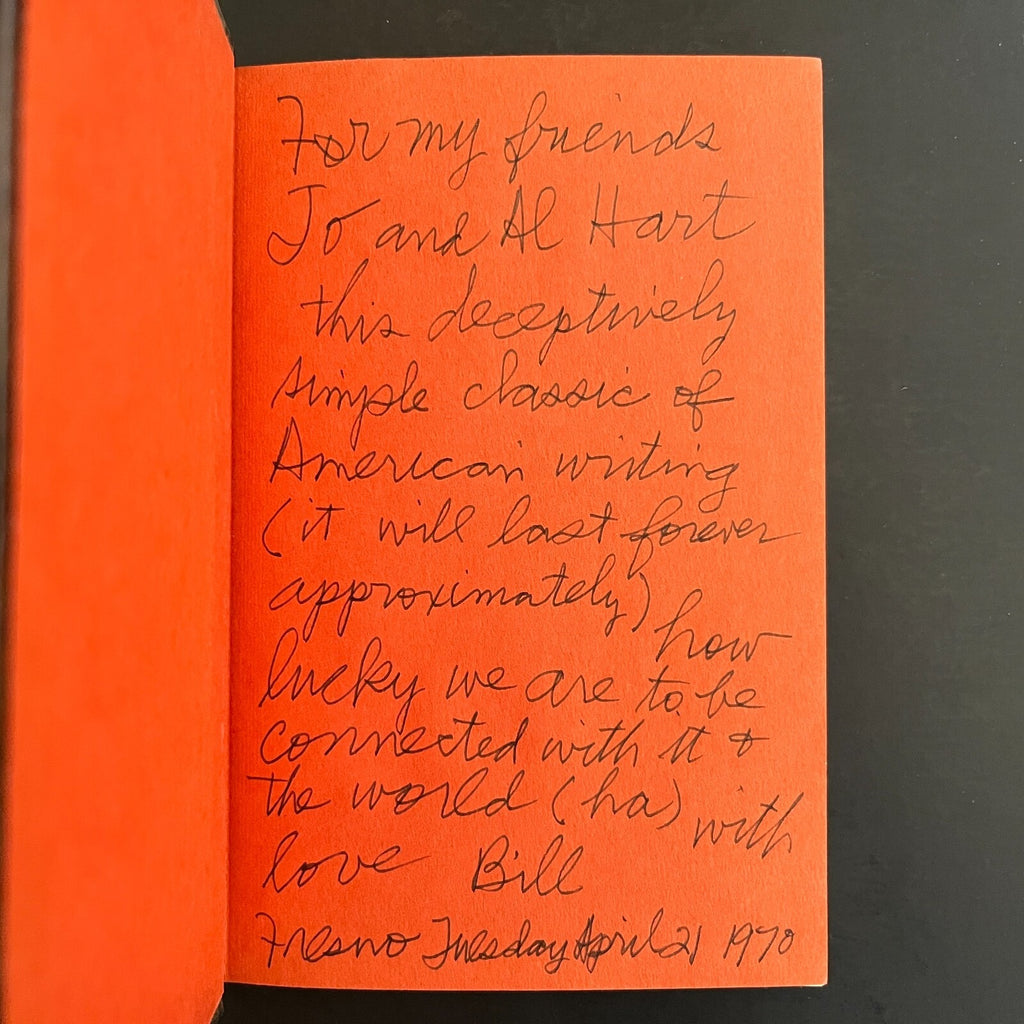 For my friends
Jo and Al Hart
this deceptively
simple classic of
American writing
(it will last forever
approximately) how
lucky we are to be
connected with it &
the world (ha) with
love Bill
Fresno Tuesday April 21 1970